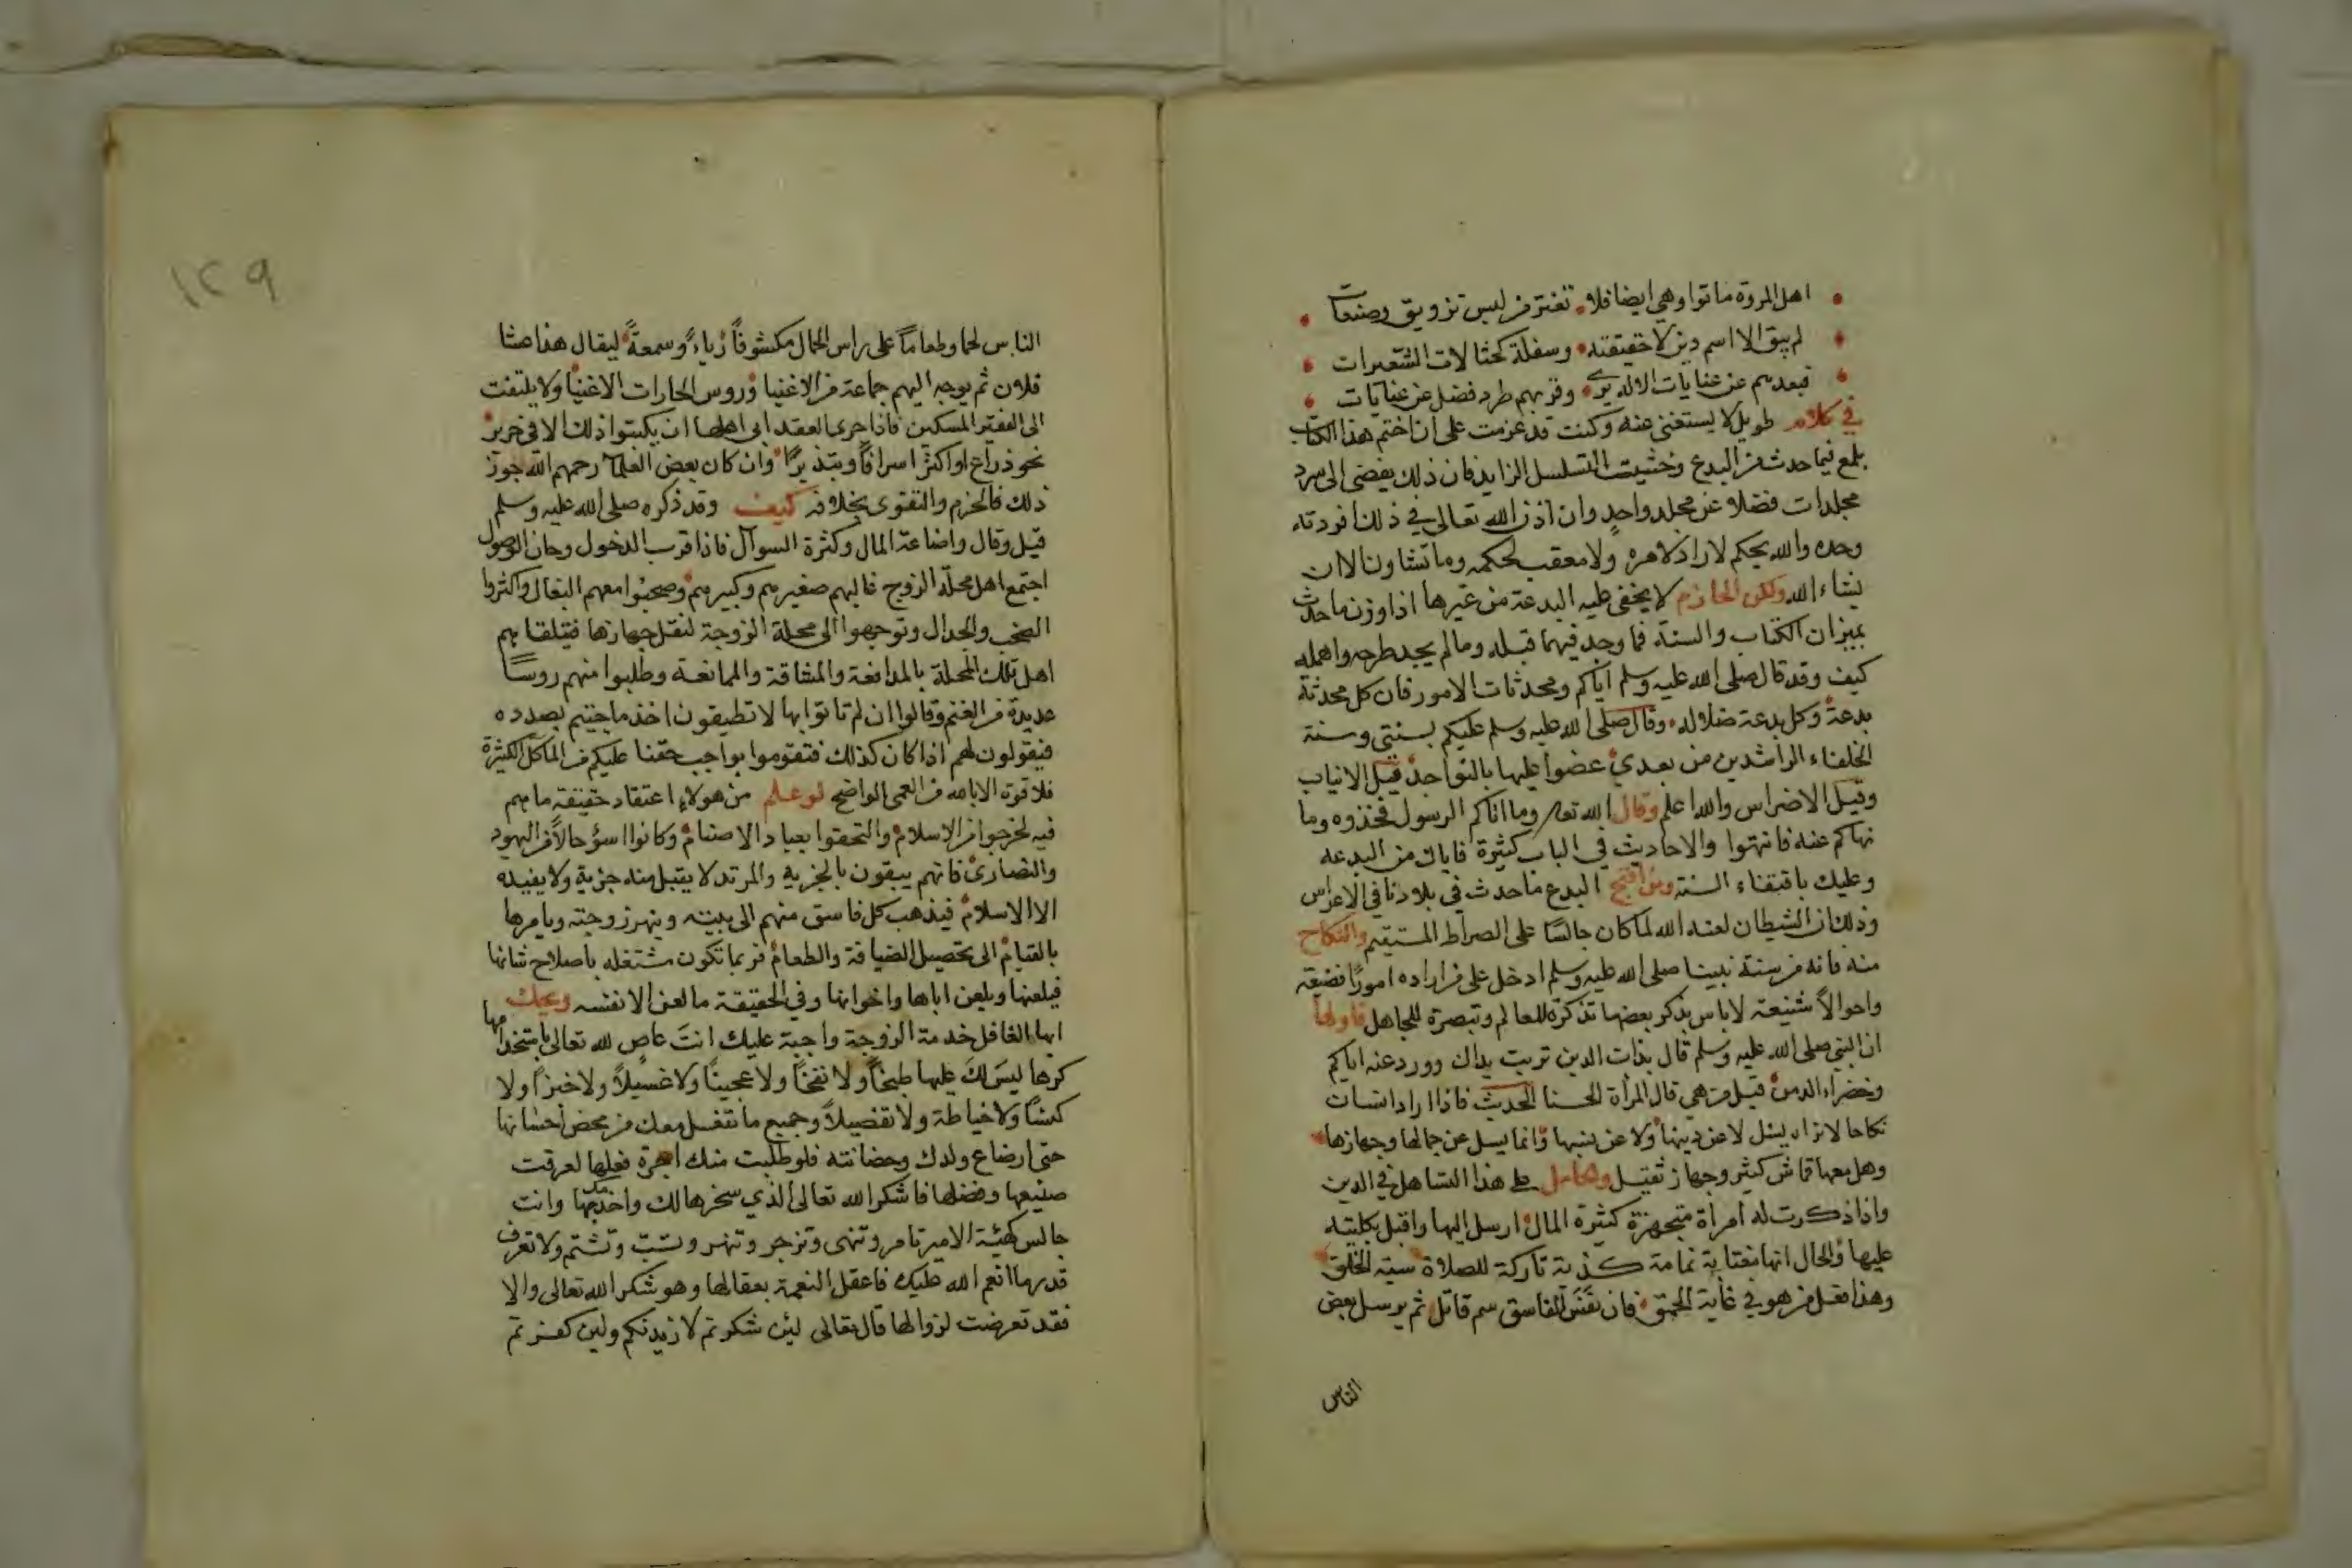 اهل المروة ماتوا وهي ايضا فلا • تغتر من لبس تزويق وصنعات
لم يبق الا اسم دين لا حقيقته • وسفلة كحثالات الشعيرات
فبعدهم عن عنايات الاله يرى • وقربهم طرد فضل عن عنايات
في كلام طويل لا يستغنى عنه وكنت قد عزمت على ان اختم هذا الكتاب
بلمع فيما حدث من البدع وخشيت التسلسل الزايد فان ذلك يفضي الى سرد
مجلدات فضلا عن مجلد واحد وان اذن الله تعالى في ذلك افردته
وحده والله يحكم لا راد لامره ولا معقب لحكمه وما تشاون الا ان
يشاء الله ولكن الحازم لا يخفى عليه البدعة من غيرها اذا وزن ما حدث
بميزان الكتاب والسنة فما وجد فيهما قبله وما لم يجد طرحه واهمله
كيف وقد قال صلى الله عليه وسلم اياكم ومحدثات الامور فان كل محدثة
بدعة وكل بدعة ضلاله • وقال صلى الله عليه وسلم عليكم بسنتي وسنة
الخلفاء الراشدين من بعدي عضوا عليها بالنواجذ قيل الانياب
وقيل الاضراس والله اعلم وقال الله تعا وما اتاكم الرسول فخذوه وما
نهاكم عنه فانتهوا والاحاديث في الباب كثيرة فاياك من البدعه
وعليك باقتفاء السنة ومن اقبح البدع ما حدث في بلادنا في الاعراس
وذلك ان الشيطان لعنه الله لما كان جالسا على الصراط المستقيم والنكاح
منه فانه من سنة نبينا صلى الله عليه وسلم ادخل على من اراده امورا فضيعة
واحوالا شنيعة لا باس بذكر بعضها تذكرة للعالم وتبصرة للجاهل فاولها
ان النبي صلى الله عليه وسلم قال بذات الدين تربت يداك وورد عنه اياكم
وخضراء الدمن قيل من هي قال المرأة الحسنا الحديث فاذا اراد انسان
نكاحا لا نراه يسئل لا عن دينها ولا عن نسبها وانما يسل عن جمالها وجهازها
وهل معها قماش كثير وجهاز ثقيل وهل على هذا التساهل في الدين
واذا ذكرت له امرأة متجهزة كثيرة المال ارسل اليها واقبل بكليته
عليها والحال انها مغتابة نمامة كذبة تاركة للصلاة سيئة الخلق
وهذا فعل من هو في غاية الحمق • فان نفس الفاسق سم قاتل ثم يرسل بعض
الناس
١٢٩
الناس لحما وطعاما على راس الحمال مكشوفا رياء وسمعة ليقال هذا عشا
فلان ثم يوجه اليهم جماعة من الاغنيا وروس الحارات الاغنيا ولا يلتفت
الى الفقير المسكين فاذا جرى العقد ابى اهلها ان يكتبوا ذلك الا في حرير
نحو ذراع او اكثر اسرافا وتبذيرا وان كان بعض العلما رحمهم الله جوز
ذلك فالحزم والتقوى بخلافه كيف وقد ذكره صلى الله عليه وسلم
قيل وقال واضاعة المال وكثرة السوآل فاذا قرب الدخول وحان الوصول
اجتمع اهل محلة الزوج غالبهم صغيرهم وكبيرهم وصحبوا معهم البغال واكثروا
الصخب والجدال وتوجهوا الى محلة الزوجة لنقل جهازها فيتلقاهم
اهل تلك المحلة بالمدافعة والمشاقة والممانعة وطلبوا منهم روسا
عديدة من الغنم وقالوا ان لم تاتوا بها لا تطيقون اخذ ما جئتم بصدده
فيقولون لهم اذا كان كذلك فتقوموا بواجب حقنا عليكم من المآكل الكثيرة
فلا قوة الا بالله من العمى الواضح لو علم من هولاء اعتقاد حقيقة ما هم
فيه لخرجوا من الاسلام والتحقوا بعباد الاصنام وكانوا اسؤ حالا من اليهود
والنصارى فانهم يبقون بالجزية والمرتد لا يقبل منه جزية ولا يفيده
الا الاسلام فيذهب كل فاسق منهم الى بيته وينهر زوجته ويامرها
بالقيام الى تحصيل الضيافة والطعام فربما تكون مشتغله باصلاح شانها
فيلعنها ويلعن اباها واخوانها وفي الحقيقة ما لعن الا نفسه ويحك
ايها الغافل خدمة الزوجة واجبة عليك انت عاص لله تعالى باستخدامها
كرها ليس لك عليها طبخا ولا نفخا ولا عجينا ولا غسيلا ولا خبزا ولا
كنسا ولا خياطة ولا تفصيلا وجميع ما تفعل معك من محض احسانها
حتى ارضاع ولدك وحضانته فلو طلبت منك اجرة فعلها لعرفت
صنيعها وفضلها فاشكر الله تعالى الذي سخرها لك واخدمكها وانت
جالس كهيئة الامير تامر وتنهى وتزجر وتنهر وتسب وتشتم ولا تعرف
قدر ما انعم الله عليك فاعقل النعمة بعقالها وهو شكر الله تعالى والا
فقد تعرضت لزوالها قال تعالى لئن شكرتم لازيدنكم ولين كفرتم